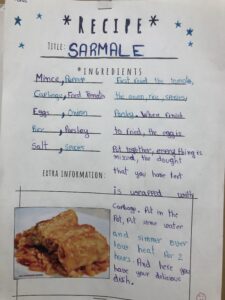 *RECIPE*
TITLE: SARMALE
*INGREDIENTS
Mince, 
Cabbage, Food Tomato
Eggs, Onion
Rice, Parsley
Salt, Spices
First food the tomato,
the onion, rice, spices,
Parsley. When fried
to food, the egg is
Put together, everything is
mixed, the dought
that you have tent
EXTRA INFORMATION:
is wrapped with
Cabbage. Put in the
Pot, Put some water
and simmer over
low heat for 2
hours. And here you
have your delicious
dish.